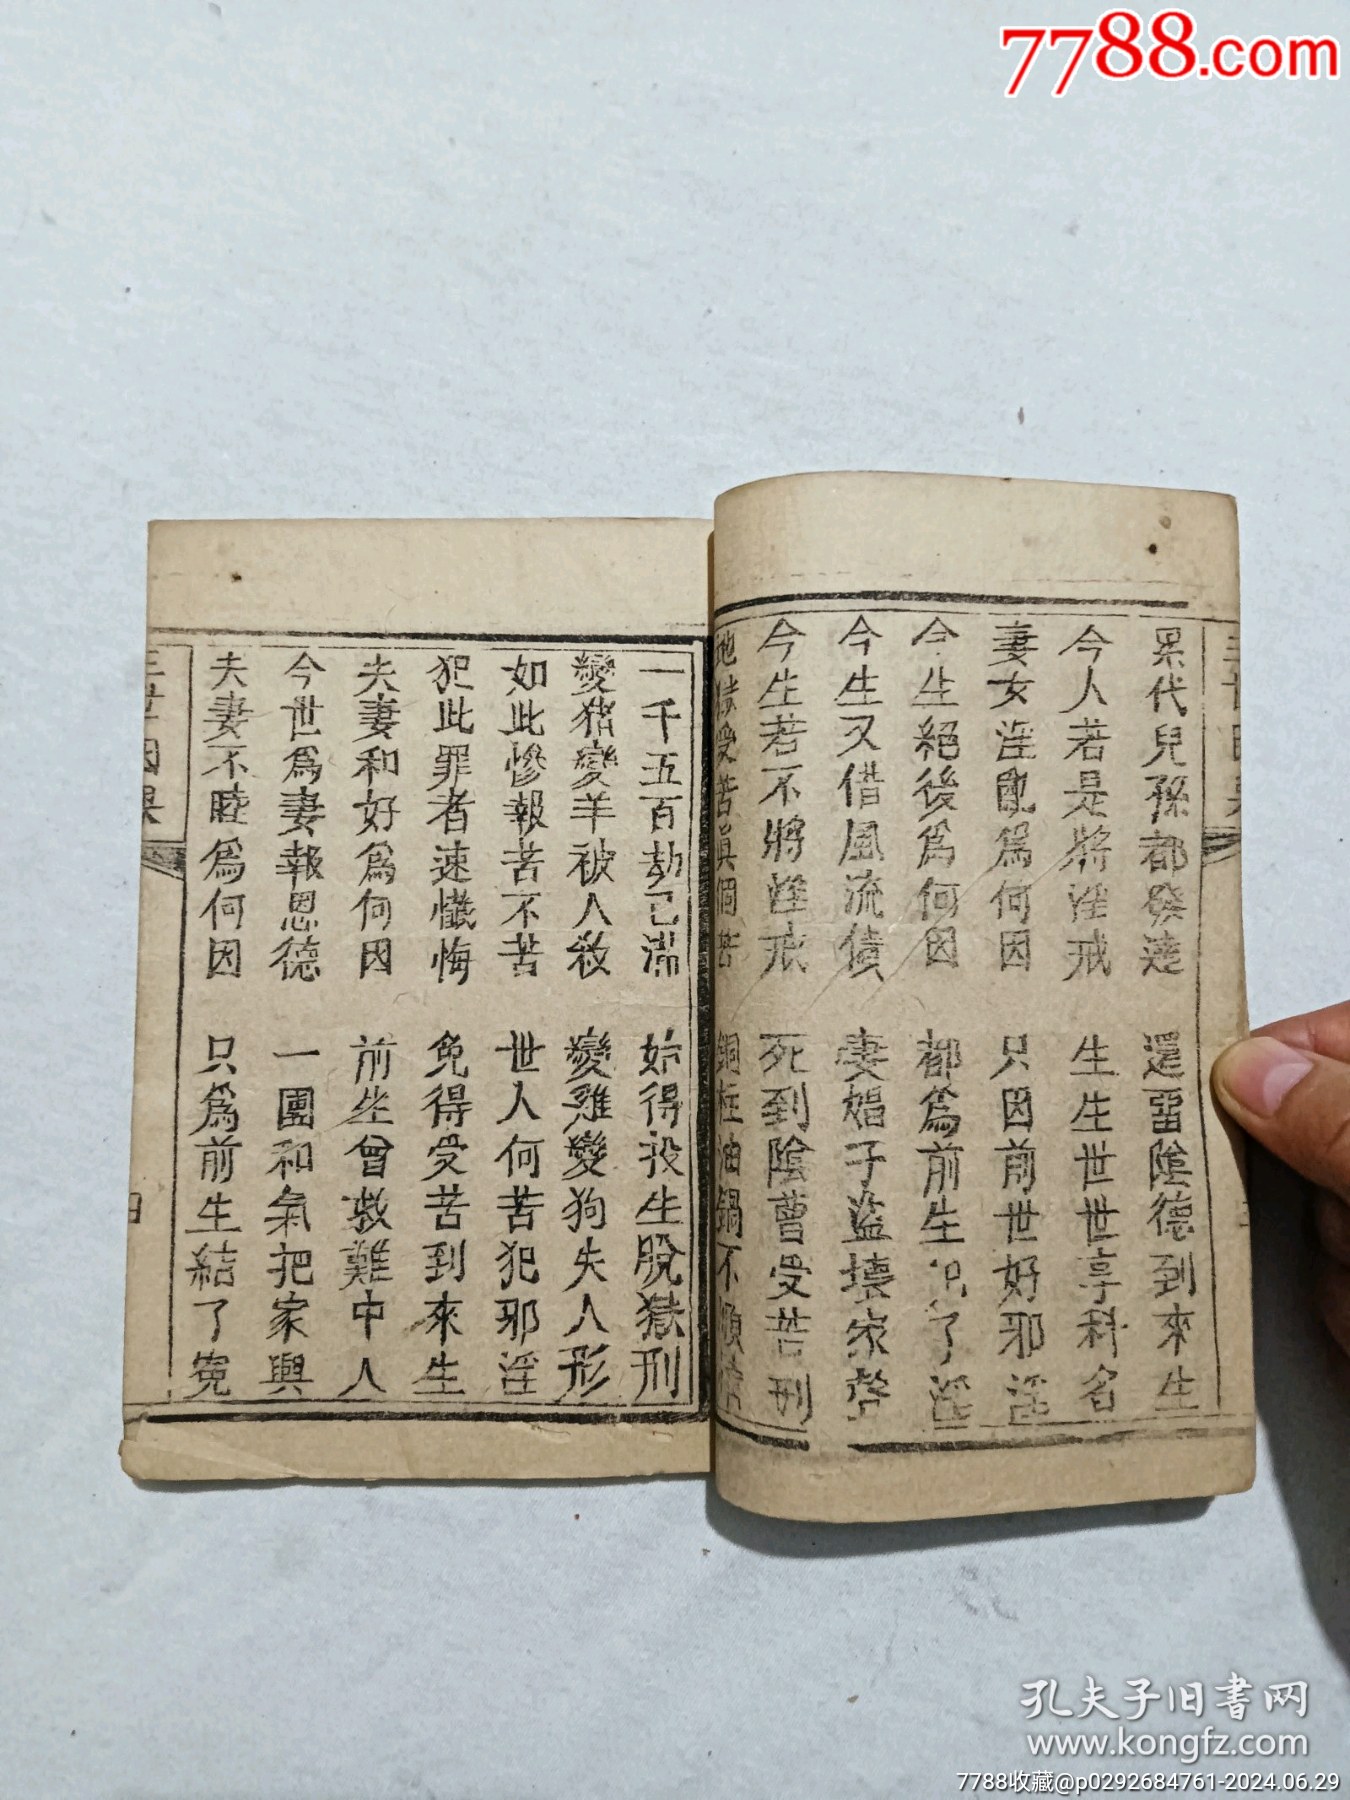 7788.com
累代兒孫都發達 還畱陰德到來生
今人若是將淫戒 生生世世享科名
妻女淫亂爲何因 只因前世好邪淫
今生絕後爲何因 都爲前生犯了淫
今生又借風流債 妻娼子盜壞家聲
今生若不將婬戒 死到陰曹受苦刑
受苦眞個苦 銅柱油鍋不順情
一千五百劫已滿 始得投生脫獄刑
變猪變羊被人殺 變雞變狗失人形
如此慘報苦不苦 世人何苦犯邪淫
犯此罪者速懺悔 免得受苦到來生
夫妻和好爲何因 前生曾救難中人
今世爲妻報恩德 一團和氣把家興
夫妻不睦爲何因 只爲前生結了冤
三世因果
四
孔夫子旧书网
www.kongfz.com
7788收藏@p0292684761-2024.06.29